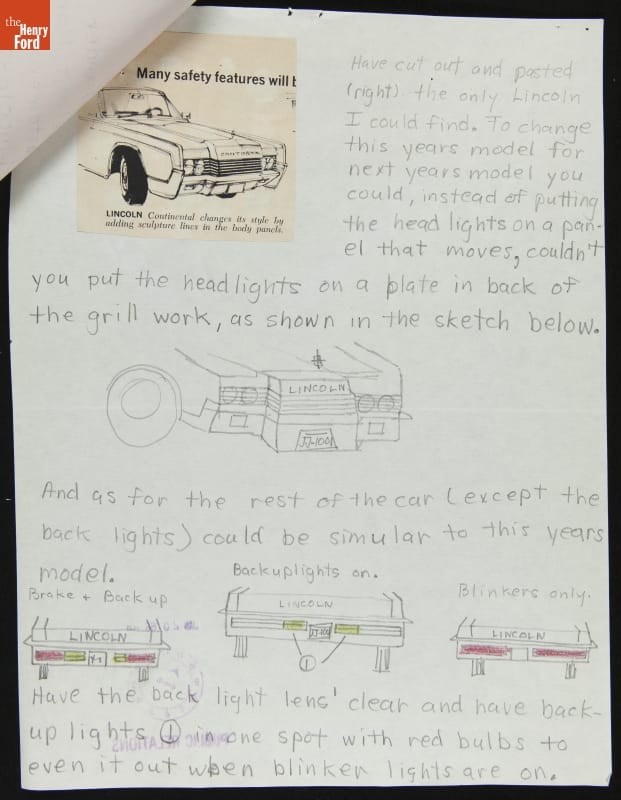 the
Henry
Ford
Many safety features will b
CONTINENTAL
LINCOLN Continental changes its style by
adding sculpture lines in the body panels.
Have cut out and pasted
(right) the only Lincoln
I could find. To change
this years model for
next years model you
could, instead of putting
the head lights on a pan-
el that moves, couldn't
you put the headlights on a plate in back of
the grill work, as shown in the sketch below.
LINCOLN
JJ-100
And as for the rest of the car (except the
back lights) could be simular to this years
model.
Brake + Back up
LINCOLN
Backuplights on.
LINCOLN
JJ-100
1
Blinkers only.
LINCOLN
Have the back light lens' clear and have back-
up lights 1 in one spot with red bulbs to
even it out when blinker lights are on.
PUBLIC RELATIONS